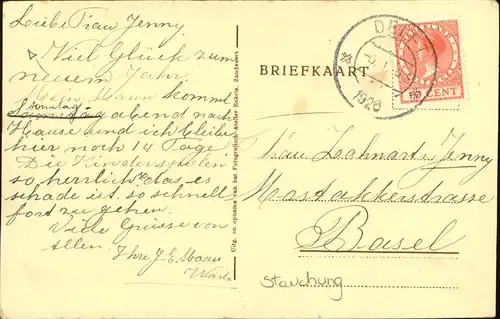 Liebe Frau Jenny
Viel Glück zum
neuem Jahr.
Mein Mann kommt
Sonntag
Samstag abend nach
Hause und ich bleibe
hier noch 14 Tage
Die Kinder spielen
so herrlich das es
schade ist so schnell
fort zu gehen.
Viele Grüsse von
allen.
Ihre J. E. Maan
Uitg. en opname van het Fotografisch Atelier Bakels, Zandvoort
BRIEFKAART
1928
NEDERLAND
CENT
Frau Zahnarts Jenny
Mostakkerstrasse
Basel
Stauchung